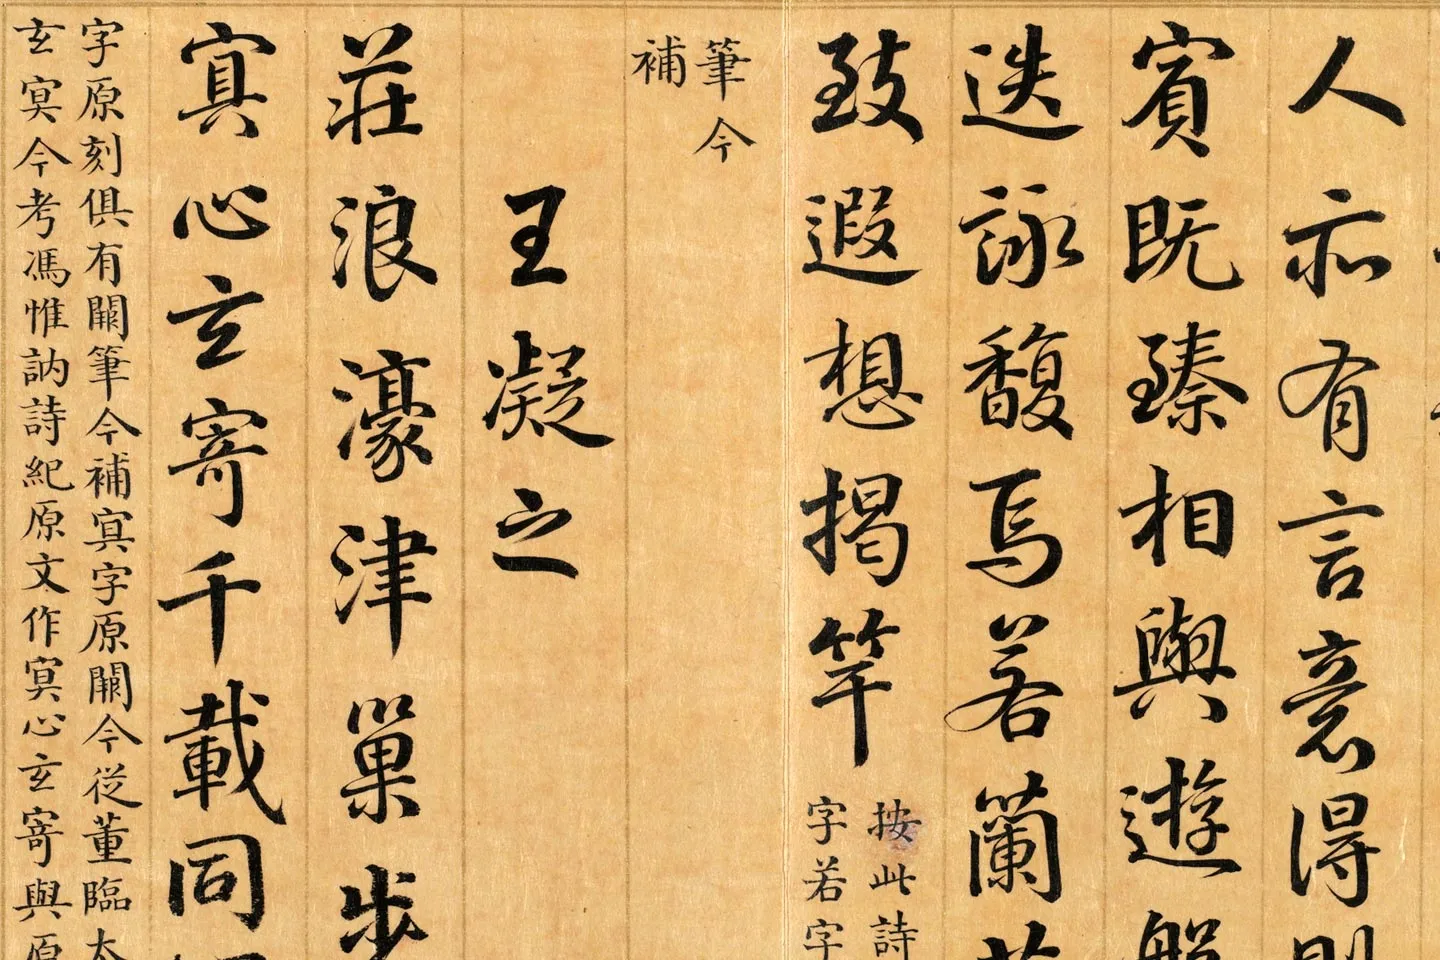 人亦有言意得則
賓既臻相與遊盤
迭詠馥焉若蘭苟
致遐想揭竿
按此詩
字若字
筆今
補
王凝之
莊浪濠津巢步
寘心玄寄千載同
字原刻俱有闕筆今補寘字原闕今從董臨太
玄寘今考馮惟訥詩紀原文作寘心玄寄與原